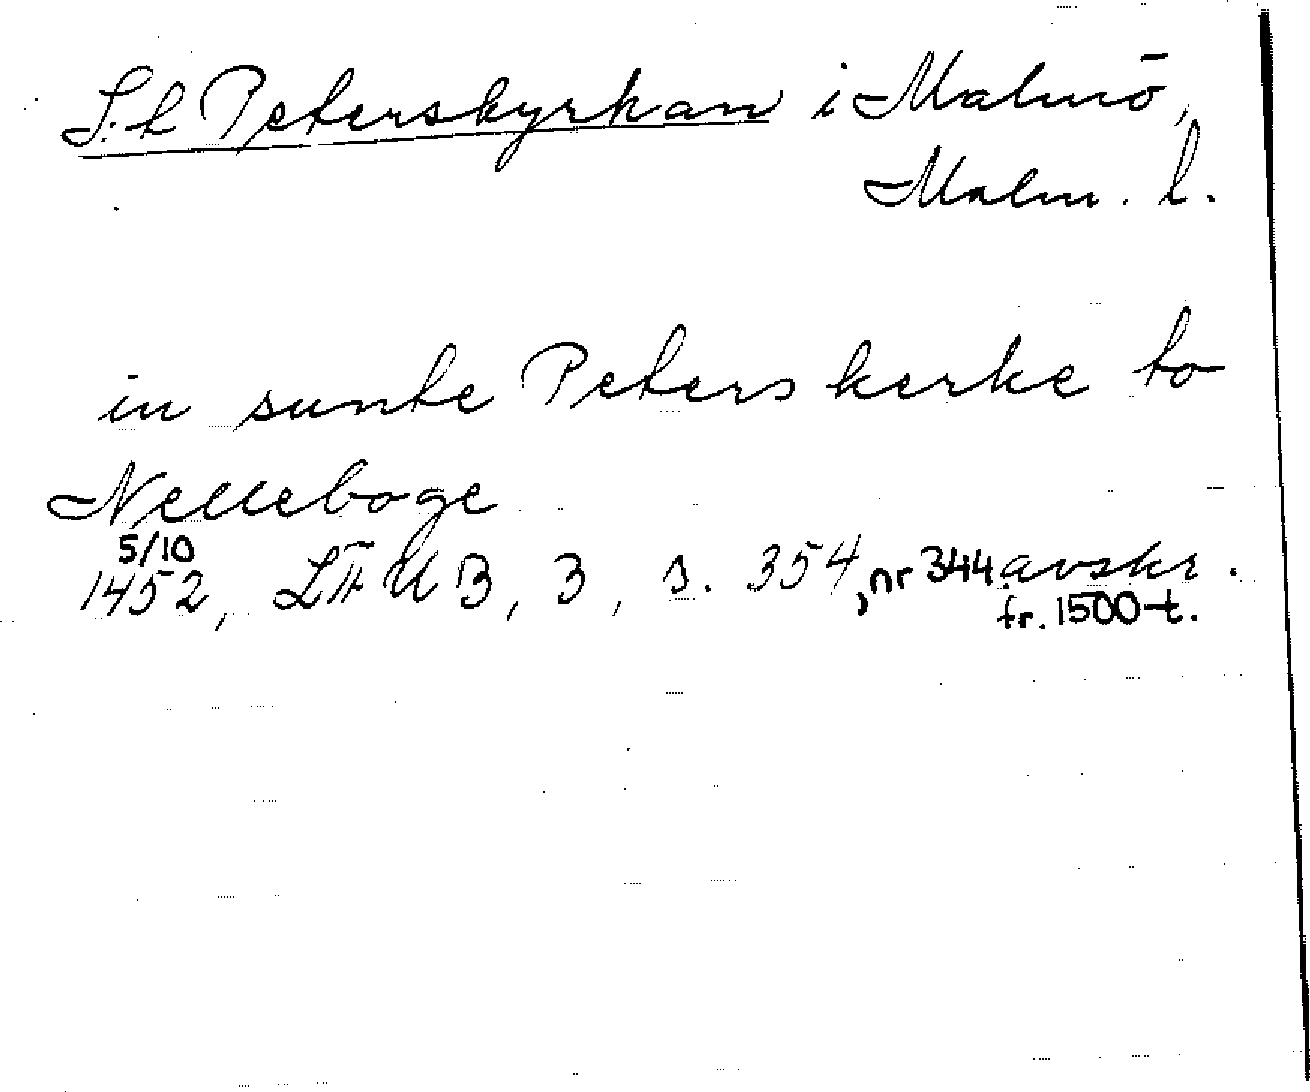 S:t Peterskyrkan i Malmö,
Malm. l.
in sunte Peters kerke to
Nelleboge
5/10
1452, LÄUB, 3, s. 354, nr 344 avskr.
fr. 1500-t.